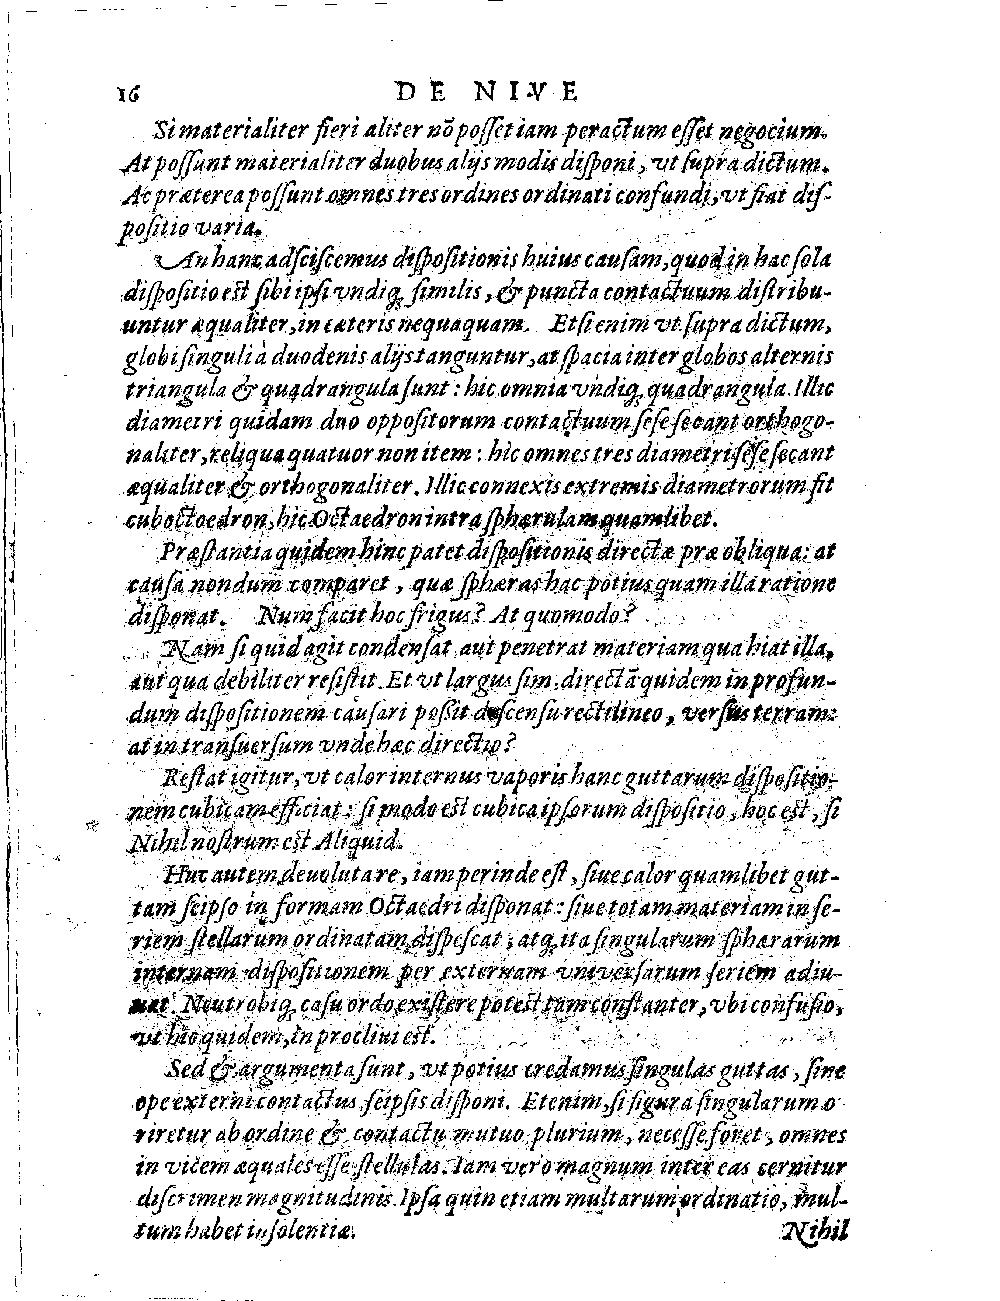 16 DE NIVE
Si materialiter fieri aliter nō posset iam peractum esset negocium.
At possunt materialiter duobus alijs modis disponi, vt supra dictum.
Ac præterea possunt omnes tres ordines ordinati confundi, vt fiat dis-
positio varia.
An hanc adsciscemus dispositionis huius causam, quod in hac sola
dispositio est sibi ipsi vndiq; similis, & puncta contactuum distribu-
untur æqualiter, in cæteris nequaquam. Etsi enim vt supra dictum,
globi singuli à duodenis alijs tanguntur, at spacia inter globos alternis
triangula & quadrangula sunt: hic omnia vndiq; quadrangula. Illic
diametri quidam duo oppositorum contactuum sese secant orthogo-
naliter, reliqua quatuor non item: hic omnes tres diametri sese secant
æqualiter & orthogonaliter. Illic connexis extremis diametrorum fit
cuboctoedron, hic Octaedron intra sphærulam quamlibet.
Præstantia quidem hinc patet dispositionis directæ præ obliqua: at
causa nondum comparet, quæ sphæras hac potius quam illa ratione
disponat. Num facit hoc frigus? At quomodo?
Nam si quid agit condensat aut penetrat materiam qua hiat illa,
aut qua debiliter resistit. Et vt largus sim, directā quidem in profun-
dum dispositionem causari possit descensu rectilineo, versus terram:
at in transuersum vnde hæc directio?
Restat igitur, vt calor internus vaporis hanc guttarum dispositio-
nem cubicam efficiat: si modo est cubica ipsorum dispositio, hoc est, si
Nihil nostrum est Aliquid.
Huc autem deuoluta re, iam perinde est, siue calor quamlibet gut-
tam seipso in formam Octaedri disponat: siue totam materiam in se-
riem stellarum ordinatam dispescat, atq; ita singularum sphærarum
internam dispositionem per externam vniversarum seriem adiu-
uet. Neutrobiq; casu ordo existere potest tam constanter, vbi confusio,
vt hic quidem, in procliui est.
Sed & argumenta sunt, vt potius credamus singulas guttas, sine
ope externi contactus seipsis disponi. Etenim, si figura singularum o
riretur ab ordine & contactu mutuo plurium, necesse foret, omnes
in vicem æquales esse stellulas. Iam vero magnum inter eas cernitur
discrimen magnitudinis. Ipsa quin etiam multarum ordinatio, mul-
tum habet insolentiæ.
Nihil